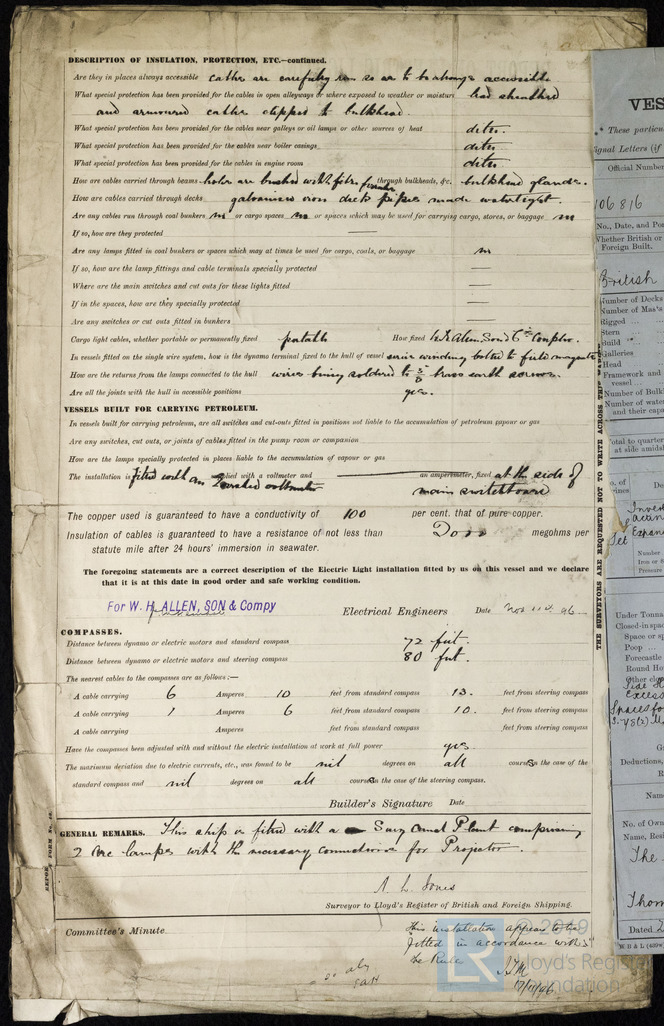 DESCRIPTION OF INSULATION, PROTECTION, ETC.—continued.
Are they in places always accessible cables are carefully run so as to be always accessible
What special protection has been provided for the cables in open alleyways or where exposed to weather or moisture lead sheathed
and armoured cables clipped to bulkhead.
What special protection has been provided for the cables near galleys or oil lamps or other sources of heat ditto.
What special protection has been provided for the cables near boiler casings ditto
What special protection has been provided for the cables in engine room ditto
How are cables carried through beams holes are bushed with fibre through bulkheads, &c. bulkhead glands.
How are cables carried through decks galvanised iron deck pipes made watertight.
Are any cables run through coal bunkers no or cargo spaces no or spaces which may be used for carrying cargo, stores, or baggage no
If so, how are they protected —
Are any lamps fitted in coal bunkers or spaces which may at times be used for cargo, coals, or baggage no
If so, how are the lamp fittings and cable terminals specially protected —
Where are the main switches and cut outs for these lights fitted —
If in the spaces, how are they specially protected —
Are any switches or cut outs fitted in bunkers —
Cargo light cables, whether portable or permanently fixed portable How fixed
In vessels fitted on the single wire system, how is the dynamo terminal fixed to the hull of vessel series winding bolted to field magnets
How are the returns from the lamps connected to the hull wires being soldered to 5/8 brass earth screws.
Are all the joints with the hull in accessible positions yes.
VESSELS BUILT FOR CARRYING PETROLEUM.
In vessels built for carrying petroleum, are all switches and cut-outs fitted in positions not liable to the accumulation of petroleum vapour or gas
Are any switches, cut outs, or joints of cables fitted in the pump room or companion
How are the lamps specially protected in places liable to the accumulation of vapour or gas
The installation is fitted with an voltmeter plied with a voltmeter and an amperemeter, fixed at the side of
main switchboard
The copper used is guaranteed to have a conductivity of 100 per cent. that of pure copper.
Insulation of cables is guaranteed to have a resistance of not less than 2000 megohms per
statute mile after 24 hours' immersion in seawater.
The foregoing statements are a correct description of the Electric Light installation fitted by us on this vessel and we declare
that it is at this date in good order and safe working condition.
For W. H. ALLEN, SON & Compy Electrical Engineers Date Nov 11th 96
COMPASSES.
Distance between dynamo or electric motors and standard compass 72 feet.
Distance between dynamo or electric motors and steering compass 80 feet.
The nearest cables to the compasses are as follows:—
A cable carrying 6 Amperes 10 feet from standard compass 13. feet from steering compass
A cable carrying 1 Amperes 6 feet from standard compass 10. feet from steering compass
A cable carrying Amperes feet from standard compass feet from steering compass
Have the compasses been adjusted with and without the electric installation at work at full power yes.
The maximum deviation due to electric currents, etc., was found to be nil degrees on all courses in the case of the
standard compass and nil degrees on all courses in the case of the steering compass.
Builder's Signature Date
GENERAL REMARKS. This ship is fitted with a Suez Canal Plant comprising
2 Arc lamps with the necessary connections for Projector.
A. L. Jones
Surveyor to Lloyd's Register of British and Foreign Shipping.
Committee's Minute.
This installation appears to be
fitted in accordance with
the Rules
17/11/96
REPORT FORM No.
THE SURVEYORS ARE REQUESTED NOT TO WRITE ACROSS THIS MARGIN
VES
These particu
ignal Letters (if
Official Number
106816
No., Date, and Po
Whether British or
Foreign Built.
British
Number of Decks
Number of Mas
Rigged
Stern
Build
Galleries
Head
Framework and
vessel
Number of Bulk
Number of water
and their capa
Total to quarter
at side amids
Under Tonna
Closed-in spac
Space or sp
Poop
Forecastle
Round Ho
Other clo
Side H
Excess
Spaces fo
Deductions,
Name
No. of Own
Name, Resi
The
Thom
Dated 2
© 2019
LR Lloyd's Register
Foundation